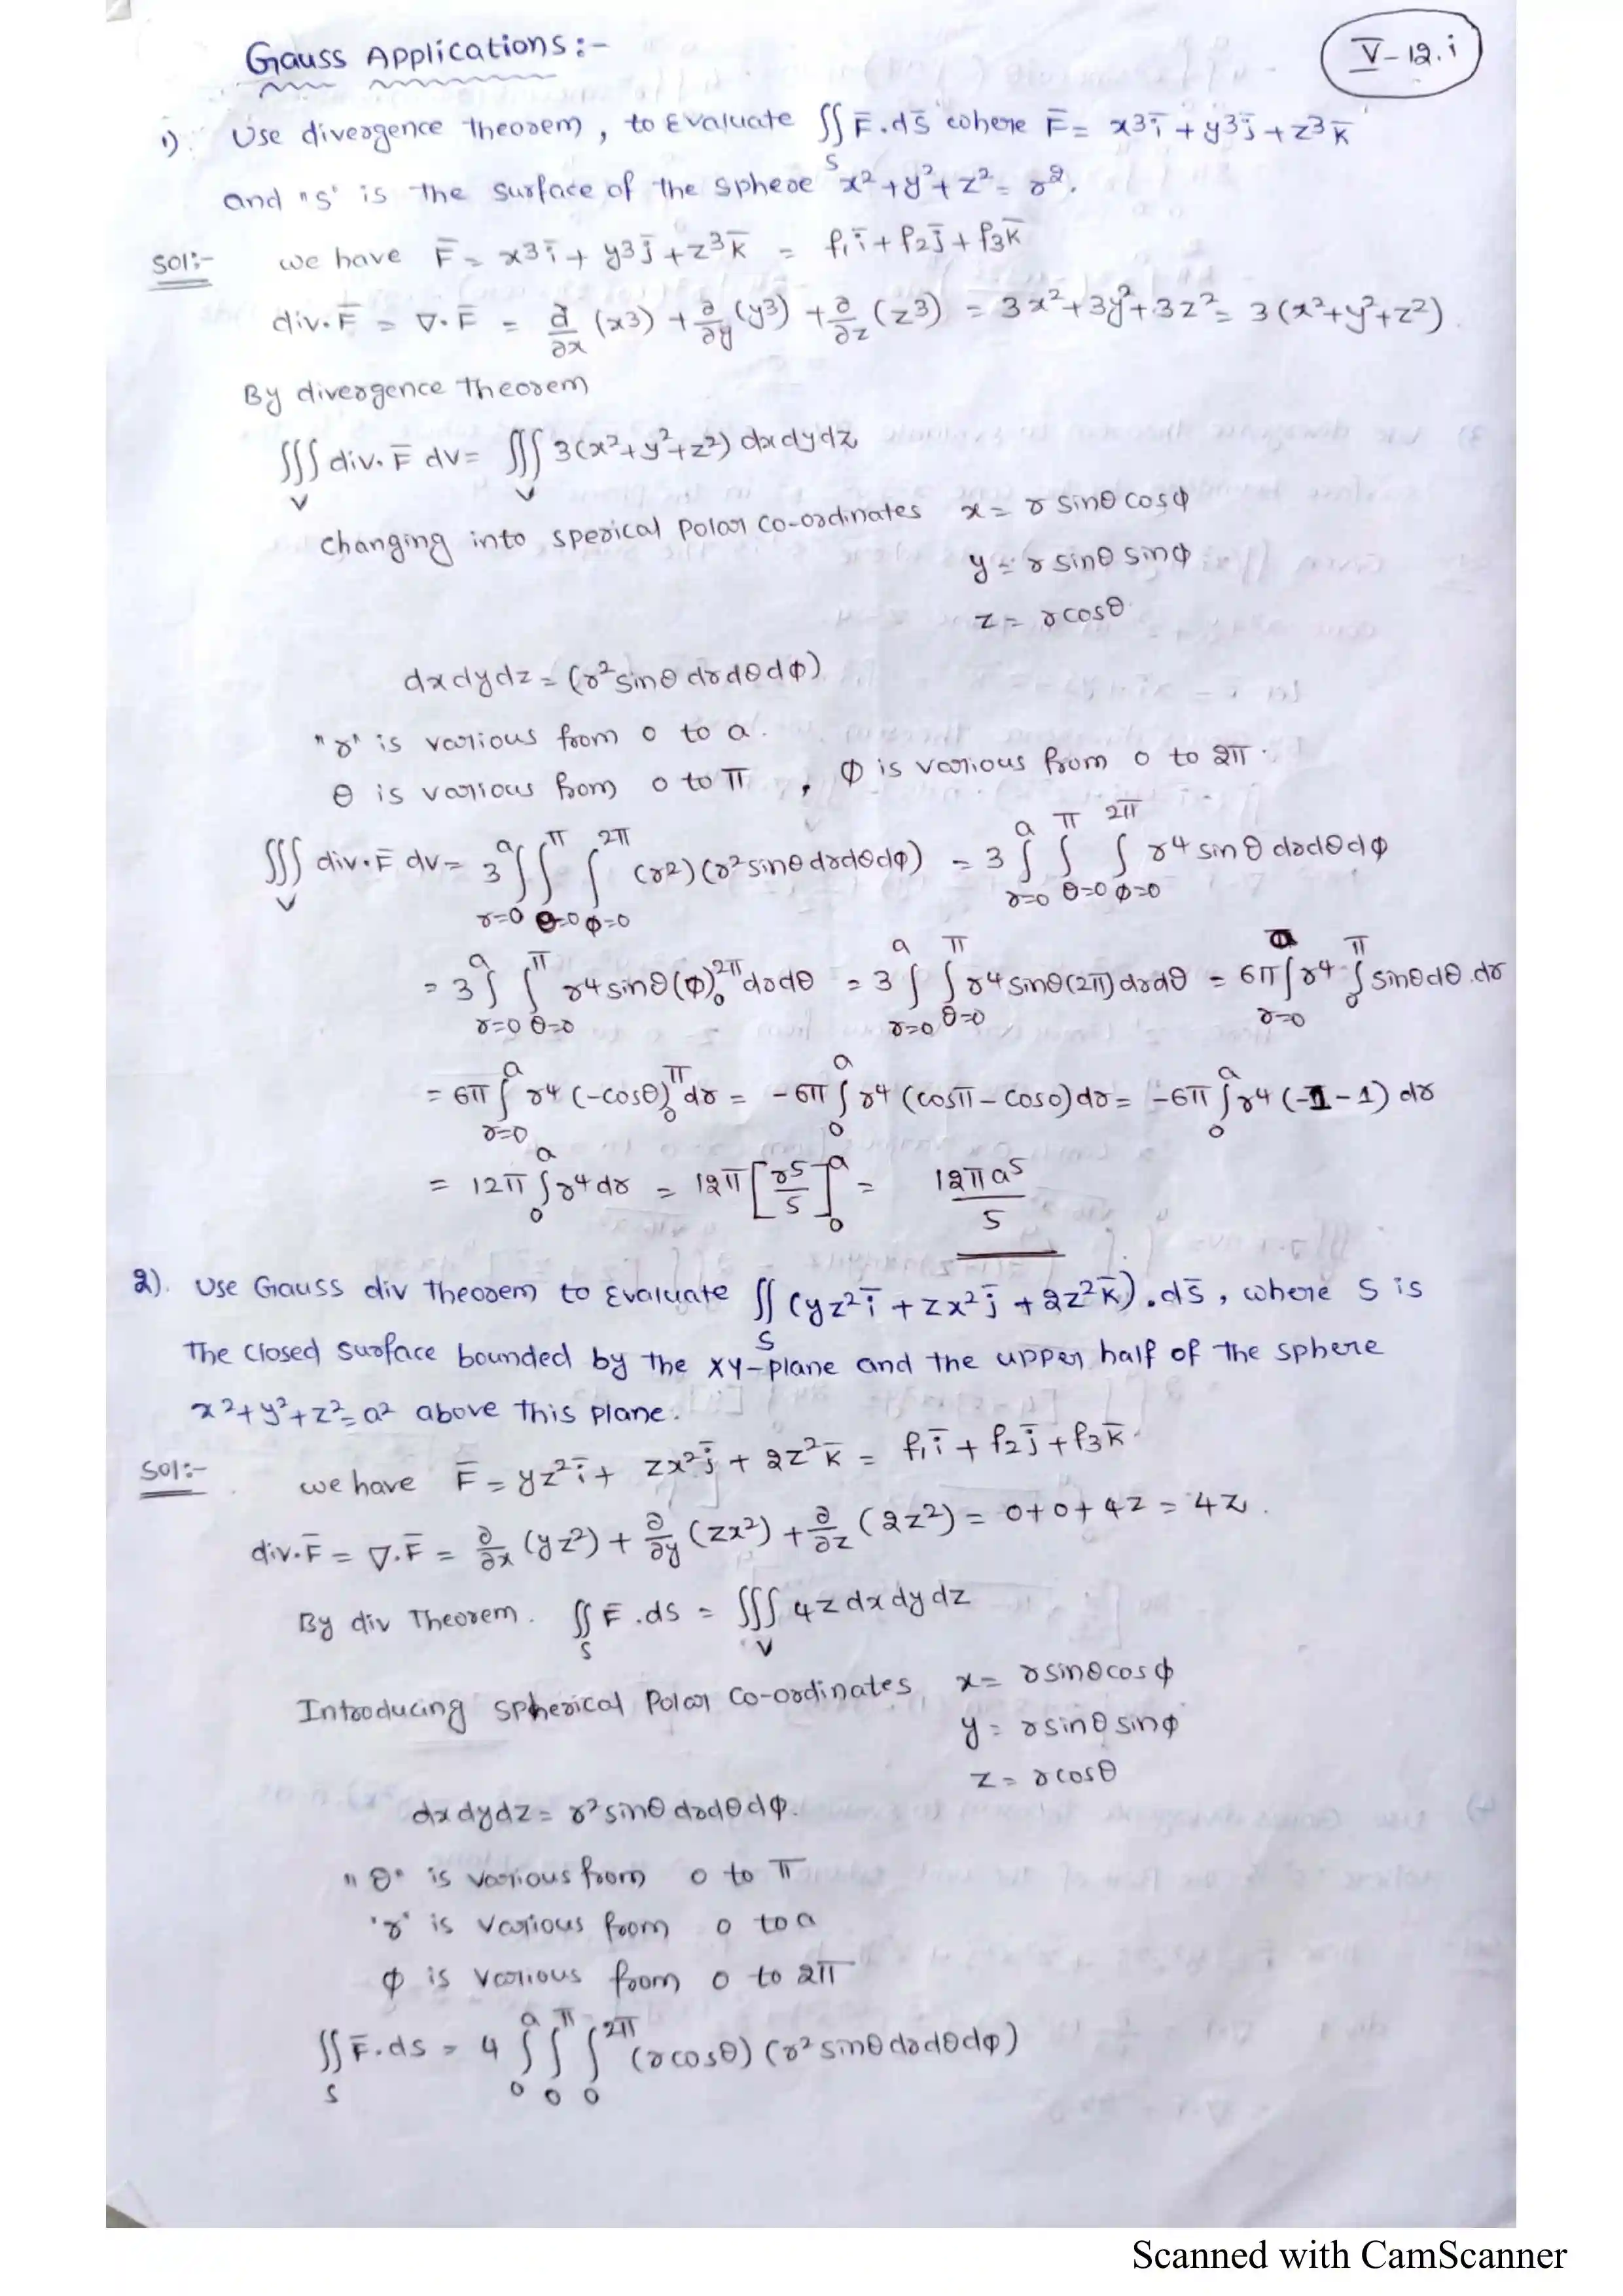 Gauss Applications:-
V-12.i
1). Use divergence theorem, to Evaluate ∬_S F̄.ds̄ where F̄ = x³ī + y³j̄ + z³k̄
and "S" is the surface of the sphere x²+y²+z² = r².
Sol:- we have F̄ = x³ī + y³j̄ + z³k̄ = f₁ī + f₂j̄ + f₃k̄
div.F̄ = ∇.F̄ = ∂/∂x (x³) + ∂/∂y (y³) + ∂/∂z (z³) = 3x²+3y²+3z² = 3(x²+y²+z²).
By divergence Theorem
∭_V div.F̄ dv = ∭_V 3(x²+y²+z²) dxdydz
Changing into sperical Polar Co-ordinates x = r sinθ cosφ
y = r sinθ sinφ
z = r cosθ
dxdydz = (r² sinθ drdθdφ)
"r" is various from 0 to a.
θ is various from 0 to π , φ is various from 0 to 2π.
∭_V div.F̄ dv = 3 ∫_{r=0}^{a} ∫_{θ=0}^{π} ∫_{φ=0}^{2π} (r²)(r² sinθ drdθdφ) = 3 ∫_{r=0}^{a} ∫_{θ=0}^{π} ∫_{φ=0}^{2π} r⁴ sinθ drdθdφ
= 3 ∫_{r=0}^{a} ∫_{θ=0}^{π} r⁴ sinθ (φ)₀^{2π} drdθ = 3 ∫_{r=0}^{a} ∫_{θ=0}^{π} r⁴ sinθ(2π) drdθ = 6π ∫_{r=0}^{a} r⁴ ∫_0^{π} sinθdθ.dr
= 6π ∫_{r=0}^{a} r⁴ (-cosθ)₀^{π} dr = -6π ∫_0^{a} r⁴ (cosπ - cos0) dr = -6π ∫_0^{a} r⁴ (-1-1) dr
= 12π ∫_0^{a} r⁴ dr = 12π [r⁵/5]_0^{a} = 12πa⁵/5
2). Use Gauss div Theorem to Evaluate ∬_S (yz²ī + zx²j̄ + 2z²k̄).ds̄, where S is
The closed surface bounded by the XY-plane and the upper half of the sphere
x²+y²+z²=a² above this plane.
Sol:- we have F̄ = yz²ī + zx²j̄ + 2z²k̄ = f₁ī + f₂j̄ + f₃k̄.
div.F̄ = ∇.F̄ = ∂/∂x (yz²) + ∂/∂y (zx²) + ∂/∂z (2z²) = 0+0+4z = 4z.
By div Theorem. ∬_S F̄.ds = ∭_V 4z dxdydz
Introducing Spherical Polar Co-ordinates, x = r sinθ cosφ
y = r sinθ sinφ
z = r cosθ
dxdydz = r² sinθ drdθdφ.
"θ" is various from 0 to π
'r' is various from 0 to a
φ is various from 0 to 2π
∬_S F̄.ds = 4 ∫_0^{a} ∫_0^{π} ∫_0^{2π} (r cosθ) (r² sinθ drdθdφ)
Scanned with CamScanner